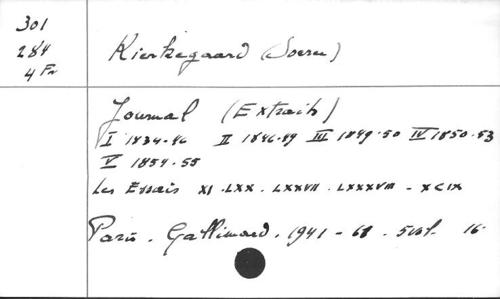 301
284
4 Fr
Kierkegaard (Soeren)
Journal (Extraits)
I 1834-46 II 1846-49 III 1849-50 IV 1850-53
V 1854-55
Les Essais XI - LXX - LXXVII - LXXXVIII - XCIX
Paris. Gallimard. 1941-68. 5 vol. 16°